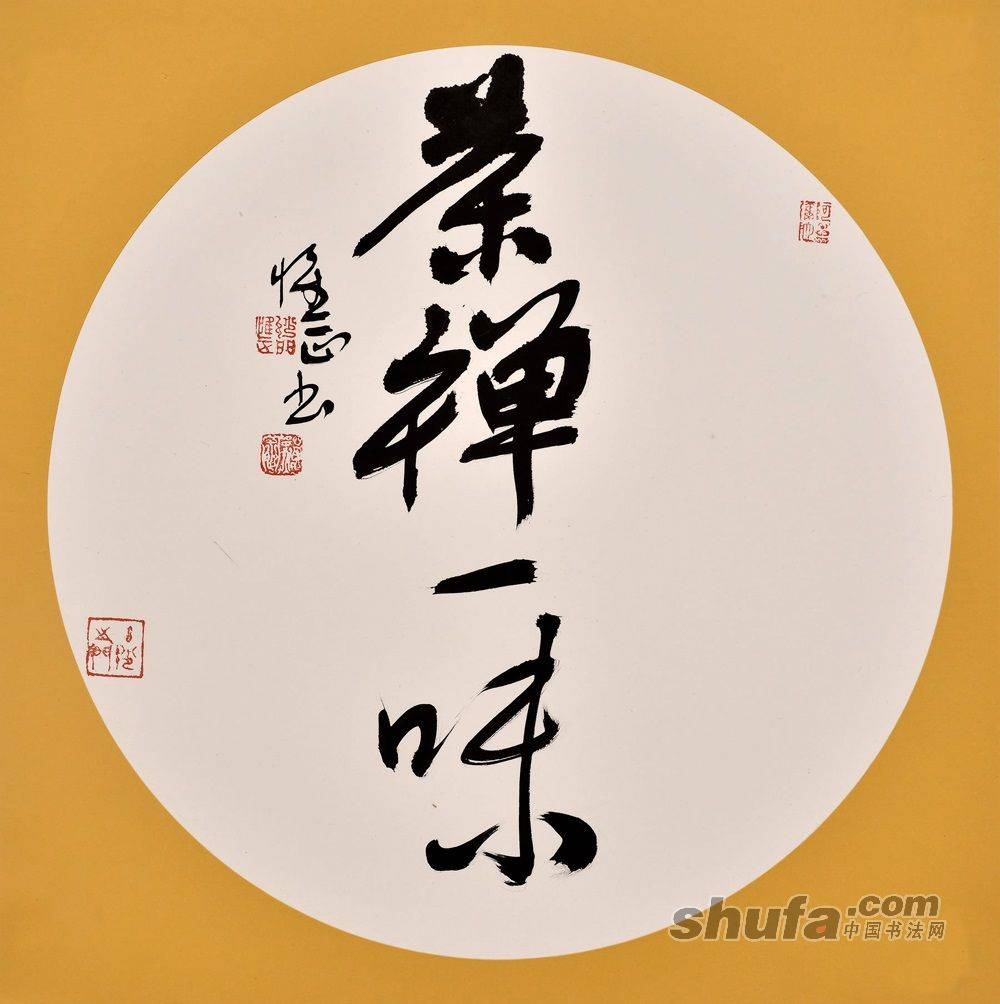 茶禅一味
惟正书
shufa.com
中国书法网